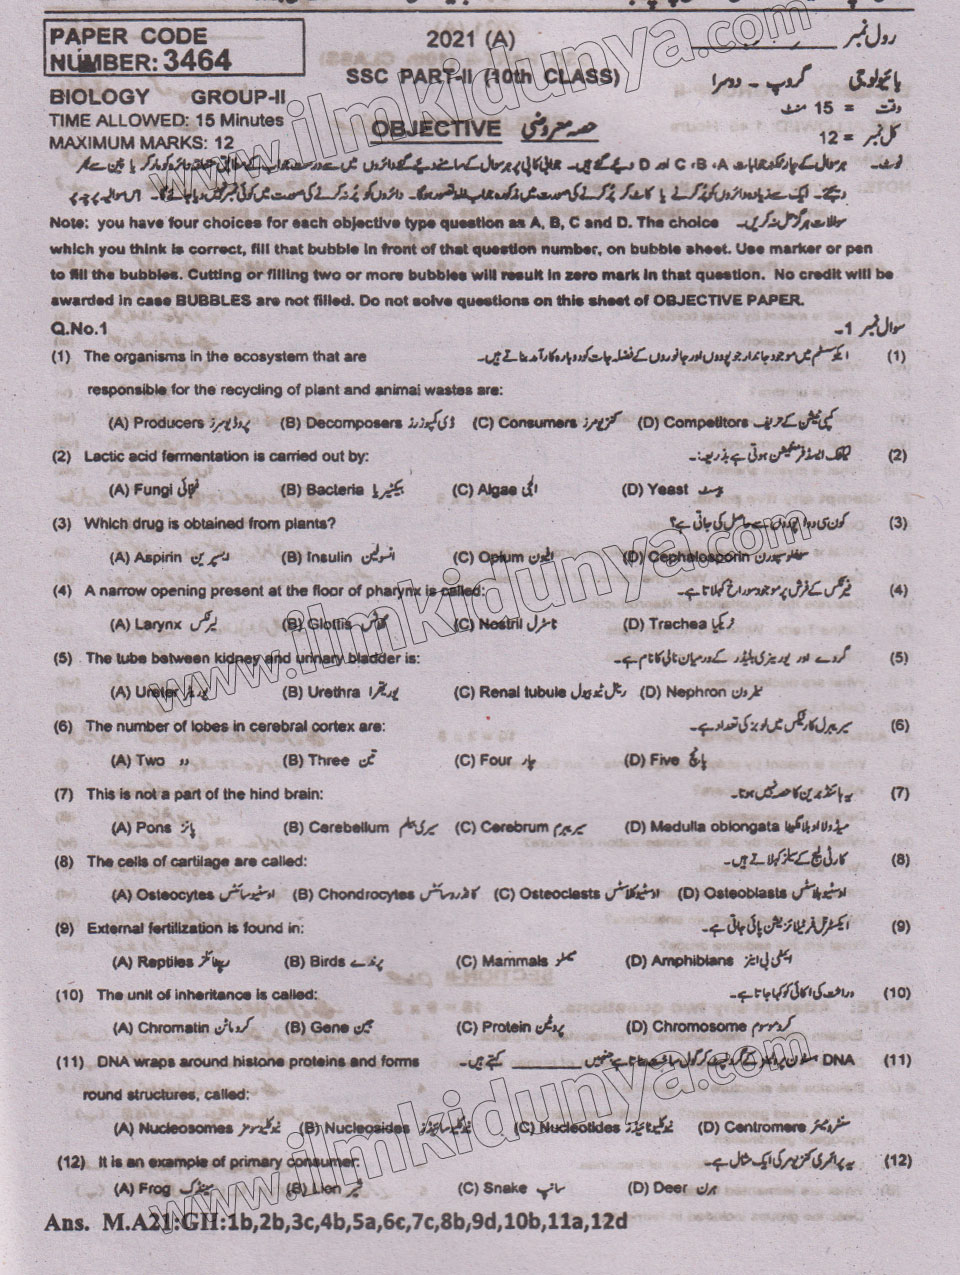 PAPER CODE
NUMBER: 3464
2021 (A)
رول نمبر
SSC PART-II (10th CLASS)
BIOLOGY GROUP-II
بائیولوجی گروپ - دوسرا
TIME ALLOWED: 15 Minutes
وقت = 15 منٹ
MAXIMUM MARKS: 12
OBJECTIVE حصہ معروضی
کل نمبر = 12
Note: you have four choices for each objective type question as A, B, C and D. The choice
which you think is correct, fill that bubble in front of that question number, on bubble sheet. Use marker or pen
to fill the bubbles. Cutting or filling two or more bubbles will result in zero mark in that question. No credit will be
awarded in case BUBBLES are not filled. Do not solve questions on this sheet of OBJECTIVE PAPER.
Q.No.1 سوال نمبر 1-
(1) The organisms in the ecosystem that are ایکوسسٹم میں موجود جاندار جو پودوں اور جانوروں کے فضلہ جات کو دوبارہ کارآمد بناتے ہیں۔ (1)
responsible for the recycling of plant and animal wastes are:
(A) Producers پروڈیوسرز (B) Decomposers ڈی کمپوزرز (C) Consumers کنزیومرز (D) Competitors
(2) Lactic acid fermentation is carried out by: لیکٹک ایسڈ فرمنٹیشن ہوتی ہے بذریعہ:۔ (2)
(A) Fungi فنجائی (B) Bacteria بیکٹیریا (C) Algae الجی (D) Yeast ییسٹ
(3) Which drug is obtained from plants? کون سی دوا پودوں سے حاصل کی جاتی ہے؟ (3)
(A) Aspirin ایسپرین (B) Insulin انسولین (C) Opium افیون (D) Cephalosporin سیفلوسپورن
(4) A narrow opening present at the floor of pharynx is called: فیرنکس کے فرش پر موجود سوراخ کہلاتا ہے۔ (4)
(A) Larynx لیرنکس (B) Glottis گلاٹس (C) Nostril ناسٹرل (D) Trachea ٹریکیا
(5) The tube between kidney and urinary bladder is: گردے اور یورینری بلیڈر کے درمیان نالی کا نام ہے۔ (5)
(A) Ureter یوریٹر (B) Urethra یوریتھرا (C) Renal tubule رینل ٹیوبیول (D) Nephron نیفرون
(6) The number of lobes in cerebral cortex are: سیریبرل کارٹیکس میں لوبز کی تعداد ہے۔ (6)
(A) Two دو (B) Three تین (C) Four چار (D) Five پانچ
(7) This is not a part of the hind brain: یہ ہائنڈ برین کا حصہ نہیں ہوتا۔ (7)
(A) Pons پانز (B) Cerebellum سیری بیلم (C) Cerebrum سیریبرم (D) Medulla oblongata میڈولا اوبلانگیٹا
(8) The cells of cartilage are called: کارٹیلیج کے سیلز کہلاتے ہیں۔ (8)
(A) Osteocytes اوسٹیوسائٹس (B) Chondrocytes کانڈروسائٹس (C) Osteoclasts اوسٹیوکلاسٹس (D) Osteoblasts اوسٹیوبلاسٹس
(9) External fertilization is found in: ایکسٹرنل فرٹیلائزیشن پائی جاتی ہے۔ (9)
(A) Reptiles ریپٹائلز (B) Birds پرندے (C) Mammals میملز (D) Amphibians ایمفی بی اینز
(10) The unit of inheritance is called: وراثت کی اکائی کو کہا جاتا ہے۔ (10)
(A) Chromatin کروماٹن (B) Gene جین (C) Protein پروٹین (D) Chromosome کروموسوم
(11) DNA wraps around histone proteins and forms DNA ہسٹون پروٹینز کے گرد لپٹ کر گول ساخت بناتا ہے جنہیں ________ کہتے ہیں۔ (11)
round structures, called:
(A) Nucleosomes نیوکلیوسومز (B) Nucleosides نیوکلیوسائیڈز (C) Nucleotides نیوکلیوٹائیڈز (D) Centromere سنٹرومیئر
(12) It is an example of primary consumer: یہ پرائمری کنزیومر کی ایک مثال ہے۔ (12)
(A) Frog مینڈک (B) Lion شیر (C) Snake سانپ (D) Deer ہرن
Ans. M.A21:GII:1b,2b,3c,4b,5a,6c,7c,8b,9d,10b,11a,12d
www.ilmkidunya.com
www.ilmkidunya.com
www.ilmkidunya.com